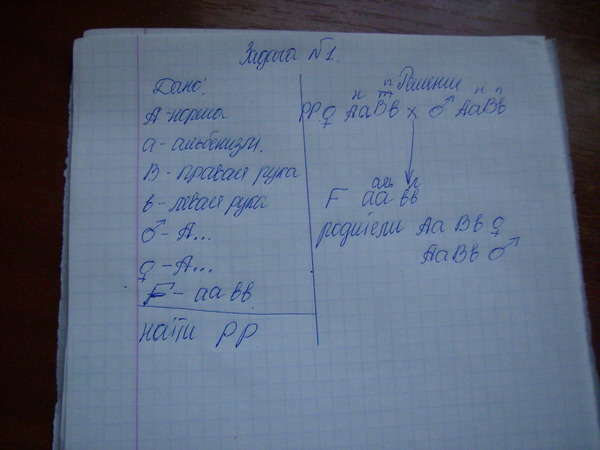 Задача №1.
Дано:
А - норма
а - альбенизм.
В - правая рука
в - левая рука
♂ - А...
♀ - А...
F - аа вв
найти РР
Решение
n n
РР ♀ АаВв x ♂ АаВв
n n
аль л
F аа вв
родители Аа Вв ♀
АаВв ♂